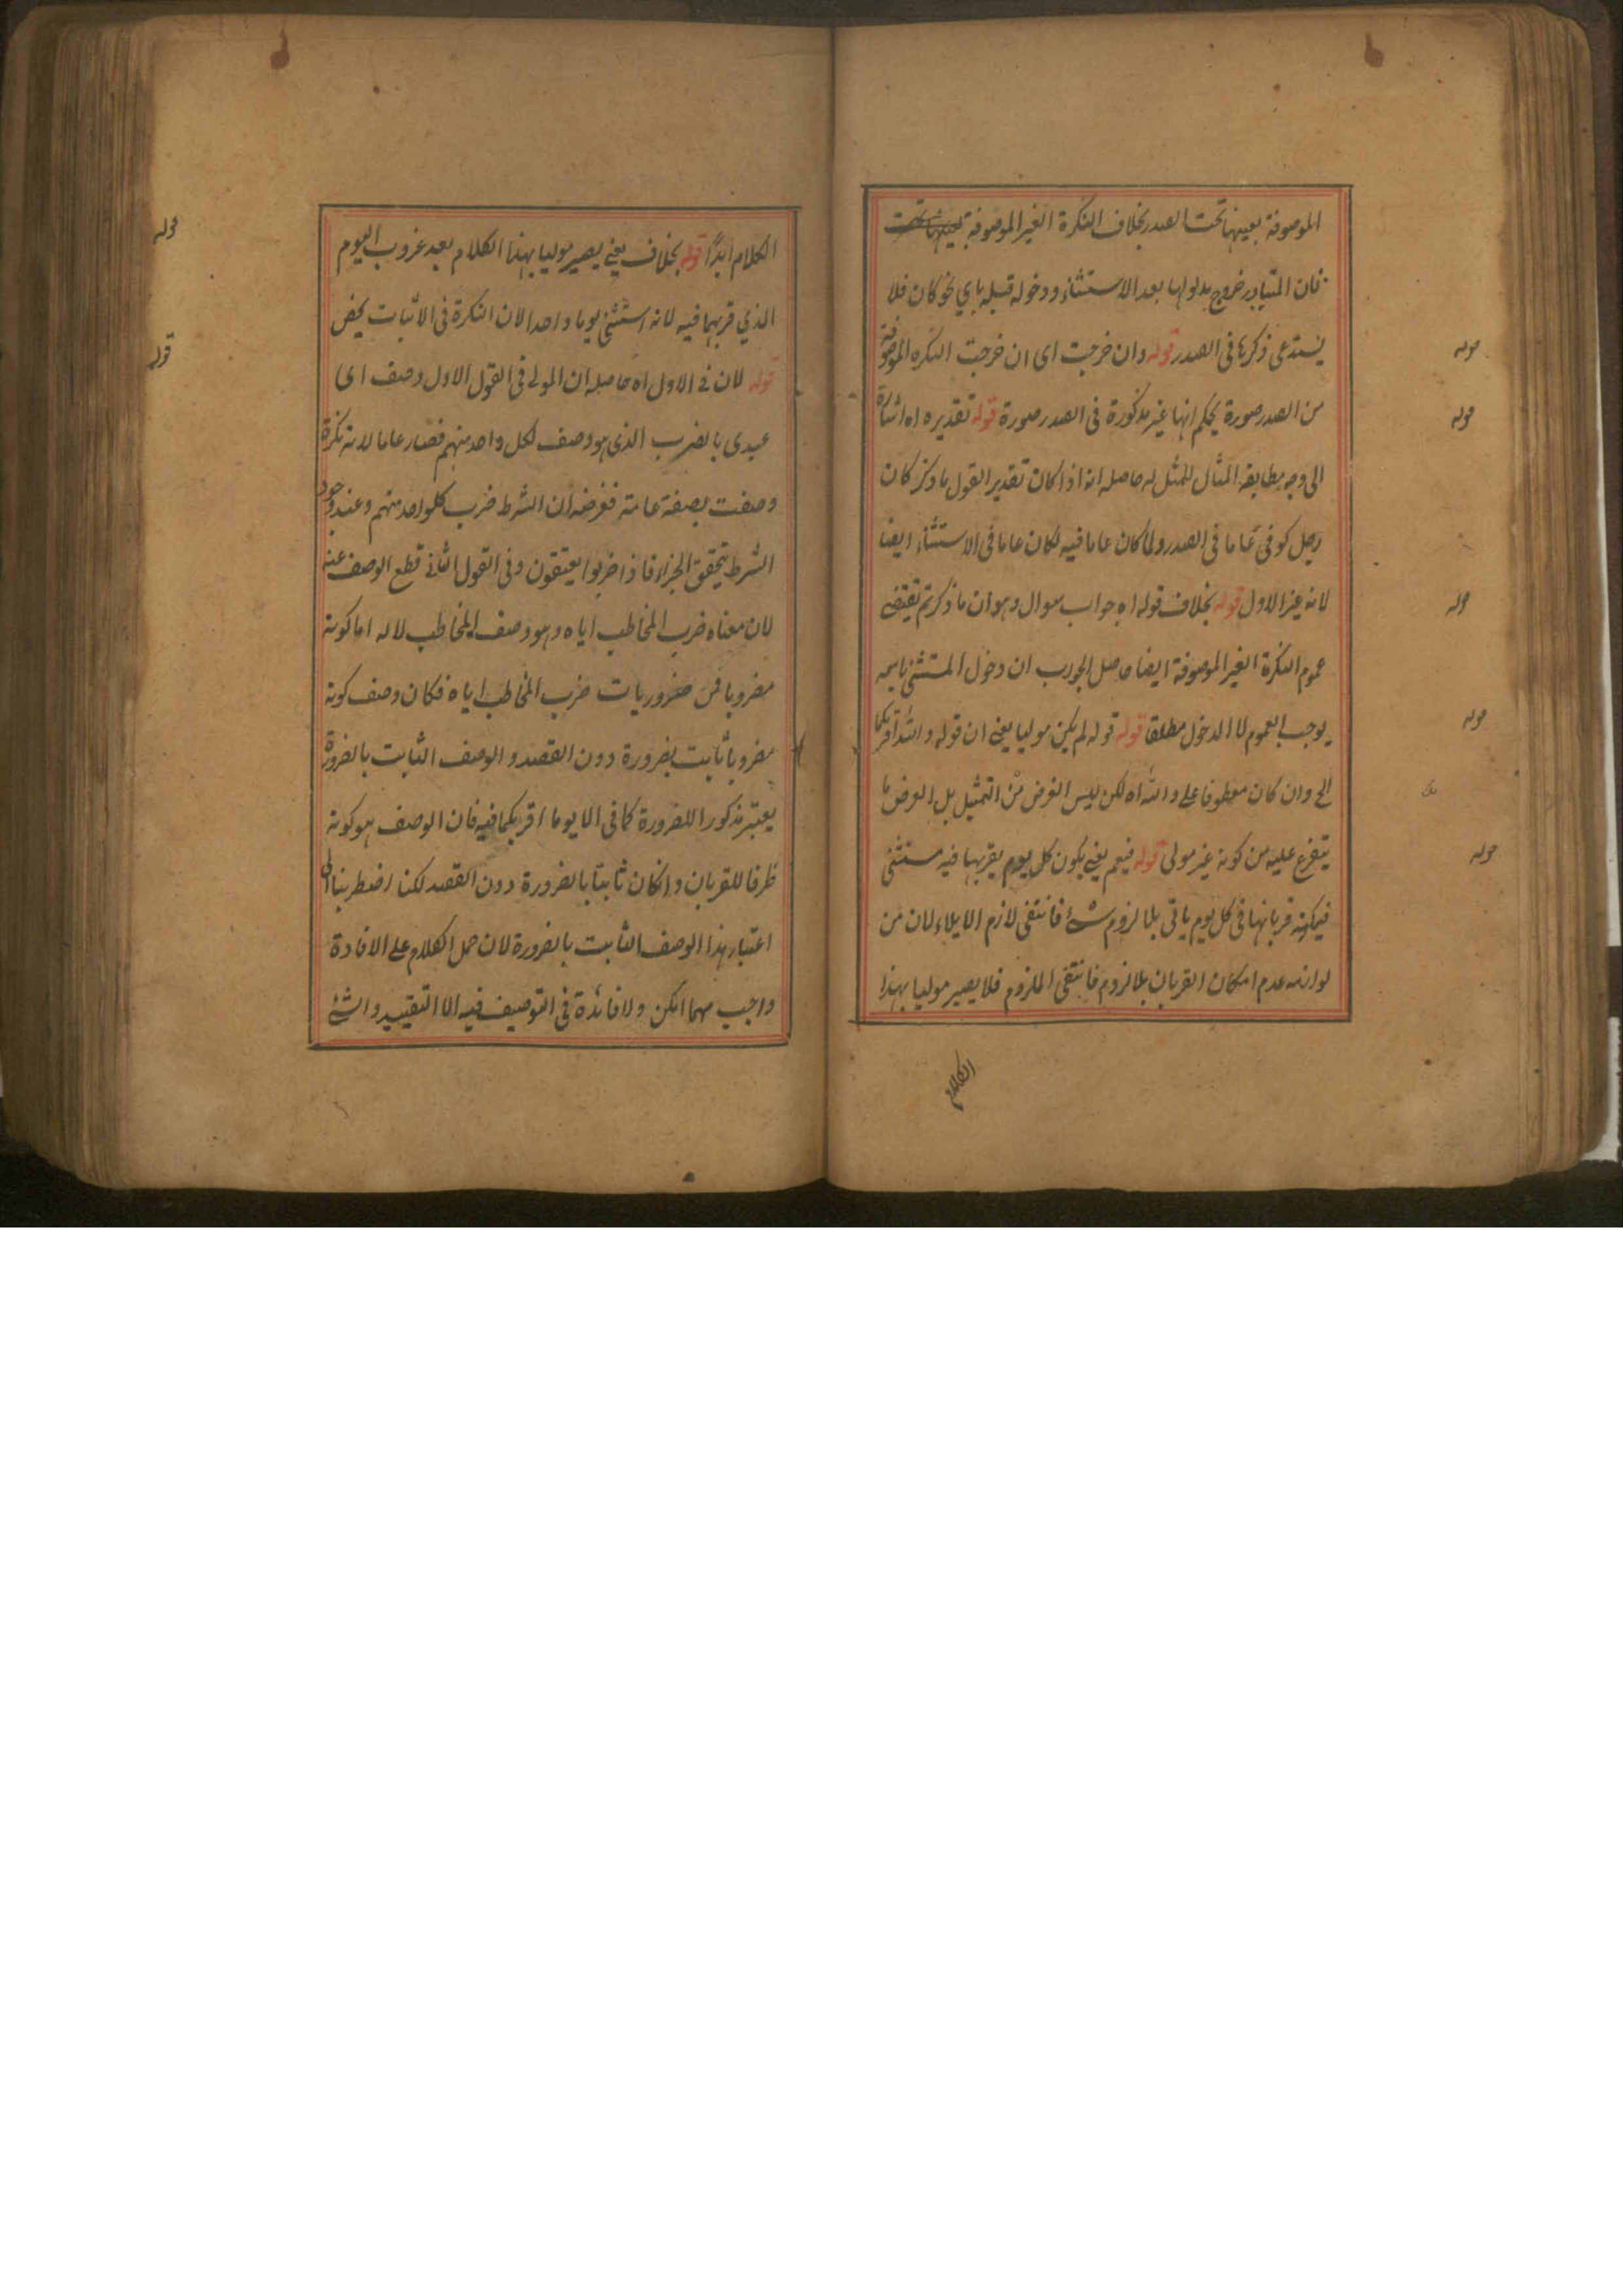 الموصوفة بعينها تحت الصدر بخلاف النكرة الغير الموصوفة
فان المتبادر خروج مدلولها بعد الاستثناء ودخوله قبله باي نحو كان فلا
يستدعى ذكرها فى الصدر قوله وان خرجت اى ان خرجت النكره الموصوفة
من الصدر صورة يحكم انها غير مذكورة فى الصدر صورة قوله تقديره اه اشارة
الى وجه مطابقة المثال للمثل له حاصله انه اذا كان تقدير القول ما ذكر كان
رجل كوفى عاما فى الصدر ولما كان عاما فيه لكان عاما فى الاستثناء ايضا
لانه عين الاول قوله بخلاف قوله اه جواب سوال وهو ان ما ذكرتم يقتضى
عموم النكرة الغير الموصوفة ايضا حاصل الجواب ان دخول المستثنى باسمه
يوجب العموم لا الدخول مطلقا قوله قوله لم يكن موليا يعنى ان قوله والله لا اقربكما
الخ وان كان معطوفا على والله اه لكن ليس الغرض من التمثيل بل الغرض ما
يتفرع عليه من كونه غير مولى قوله فيعم يعنى يكون كل يوم يقربها فيه مستثنى
فيمكنه قربانها فى كل يوم ياتى بلا لزوم شئ فانتفى لازم الايلاء لان من
لوازمه عدم امكان القربان بلا لزوم فانتفى الملزوم فلا يصير موليا بهذا
الكلام
قوله
قوله
قوله
قوله
قوله
قوله
الكلام ابدًا قوله بخلاف يعنى يصير موليا بهذا الكلام بعد غروب اليوم
الذي قربهما فيه لانه استثنى يوما واحدا لان النكرة فى الاثبات يخص
قوله لان فى الاول اه حاصله ان المولى فى القول الاول وصف اى
عبيدى بالضرب الذى هو وصف لكل واحد منهم فصار عاما لانه نكرة
وصفت بصفة عامة فغرضه ان الشرط ضرب كلواحد منهم وعند وجود
الشرط يتحقق الجزاء فاذا ضربوا يعتقون وفى القول الثانى قطع الوصف عنه
لان معناه ضرب المخاطب اياه وهو وصف المخاطب لا له اما كونه
مضروبا فمن ضروريات ضرب المخاطب اياه فكان وصف كونه
مضروبا ثابت بضرورة دون القصد والوصف الثابت بالضرورة
يعتبر مذكورا للضرورة كما فى الا يوما اقربكما فيه فان الوصف هو كونه
ظرفا للقربان وانكان ثابتا بالضرورة دون القصد لكنا اضطربنا الى
اعتبار هذا الوصف الثابت بالضرورة لان حمل الكلام على الافادة
واجب مهما امكن ولا فائدة فى التوصيف فيه الا التقييد والشئ
قوله
قوله